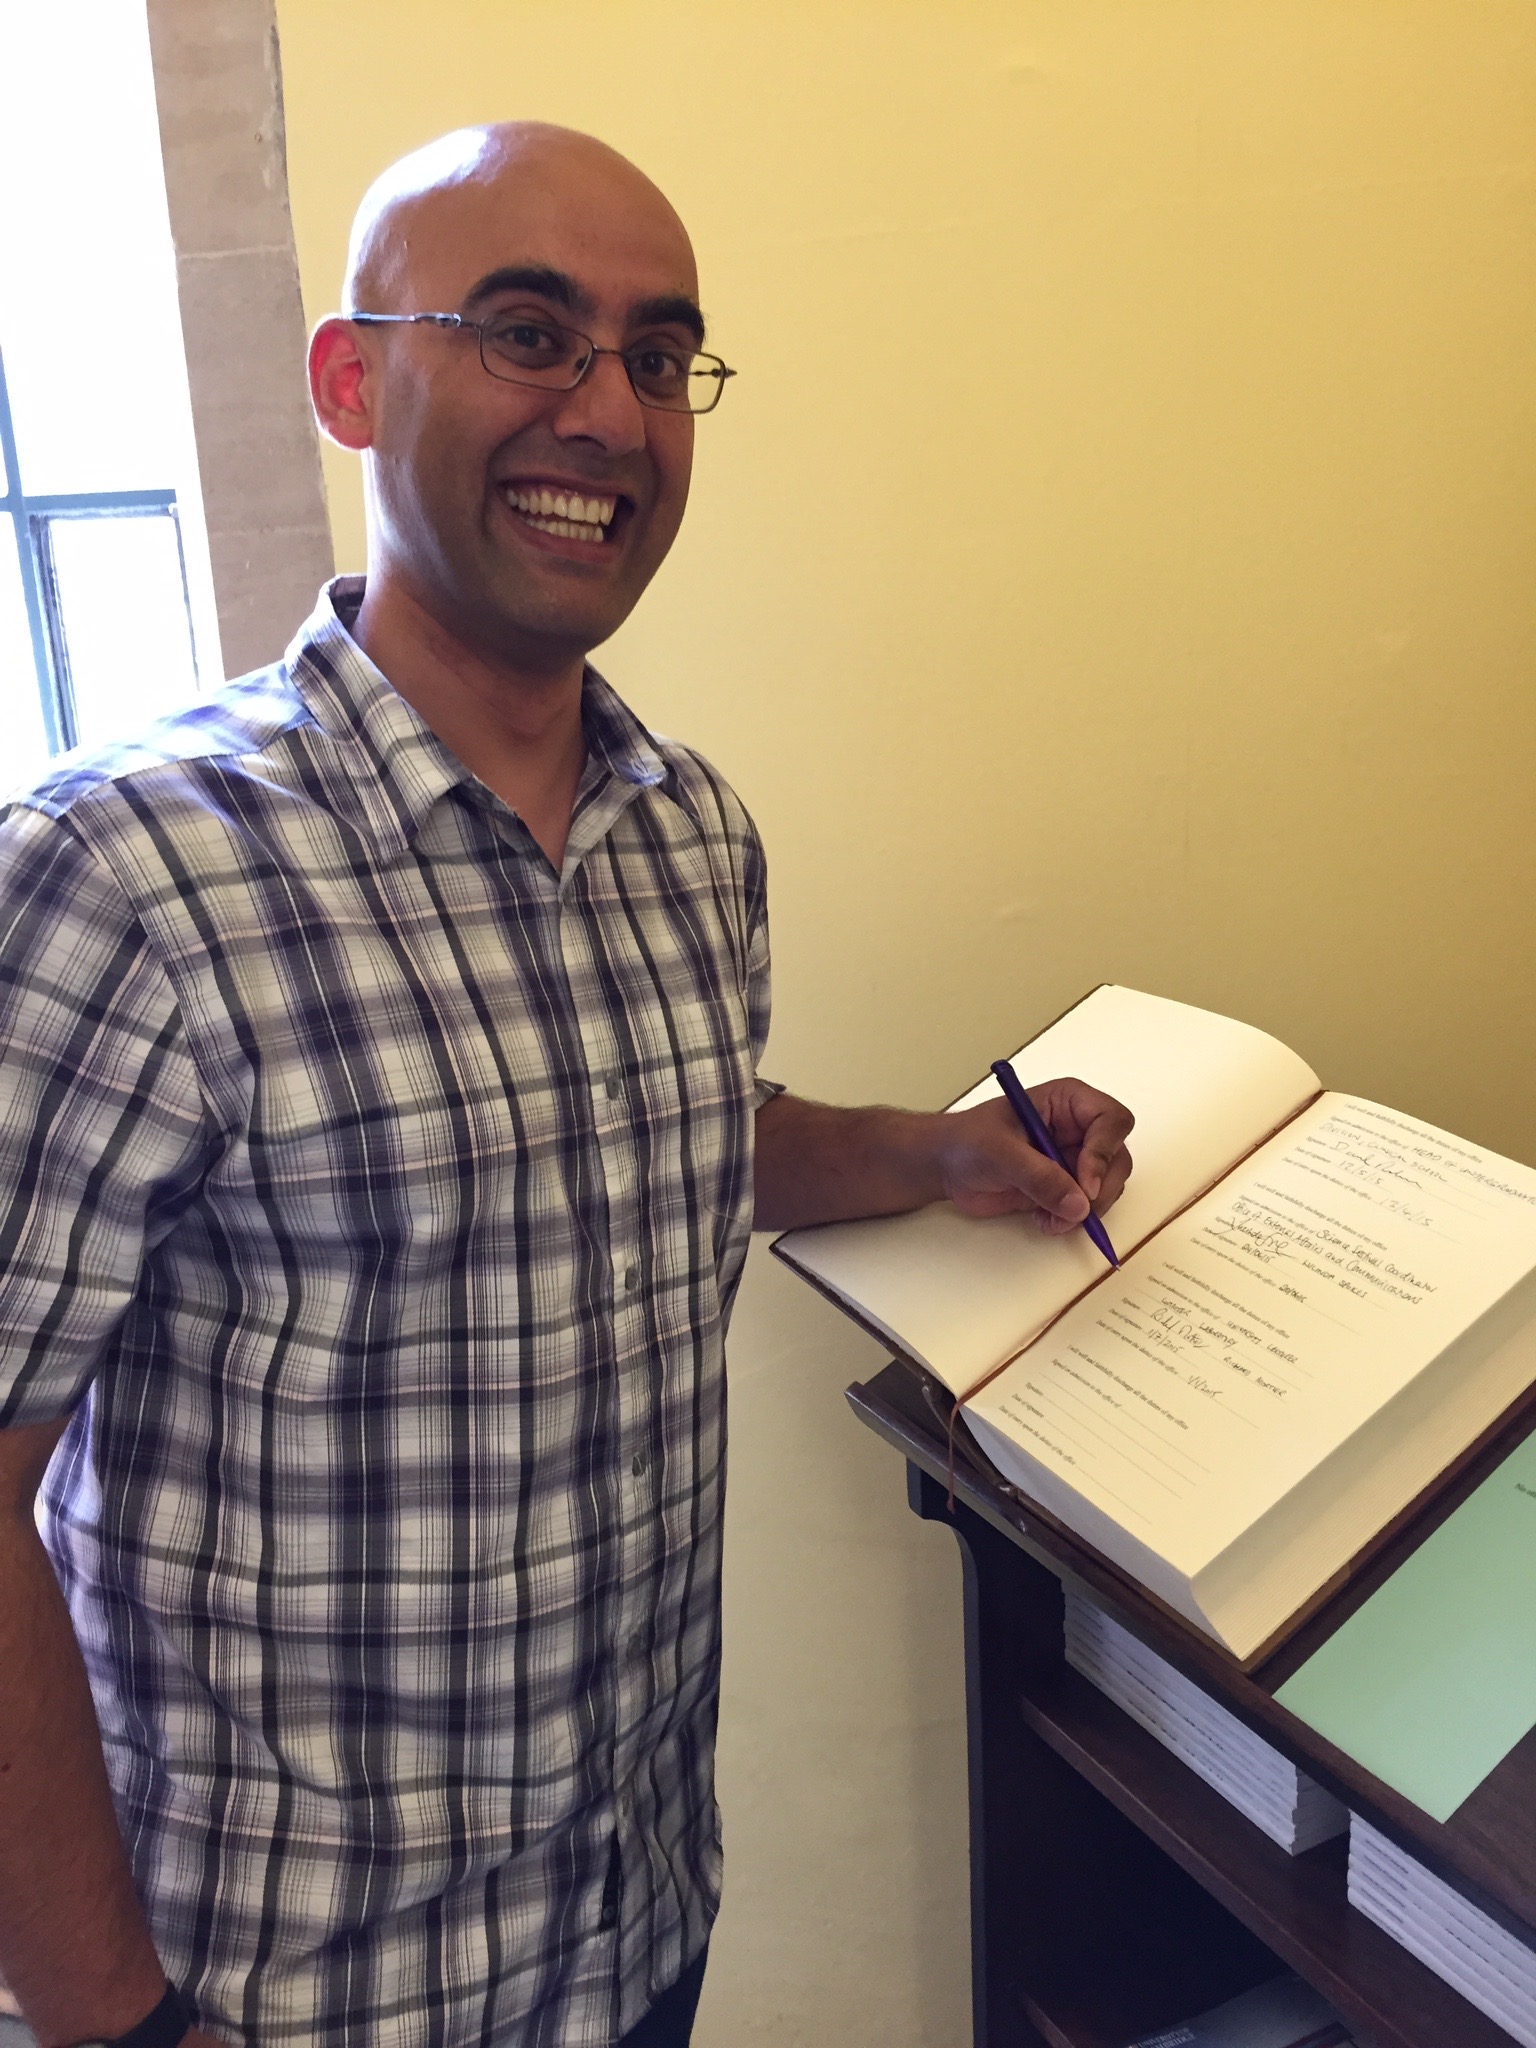 I will well and faithfully discharge all the duties of my office
Signed on admission to the office of HEAD OF UNDERGRADUATE
DIVISION, CLINICAL SCHOOL
Signature
Date of signature 12/5/15
Date of entry upon the duties of the office
I will well and faithfully discharge all the duties of my office
Signed on admission to the office of Science Festival Coordinator
Office of External Affairs and Communications
Signature
Date of signature
Date of entry upon the duties of the office
I will well and faithfully discharge all the duties of my office
Signed on admission to the office of UNIVERSITY LECTURER
LABORATORY
Signature RICHARD MORTIER
Date of signature 1/7/2015
Date of entry upon the duties of the office
I will well and faithfully discharge all the duties of my office
Signed on admission to the office of
Signature
Date of signature
Date of entry upon the duties of the office